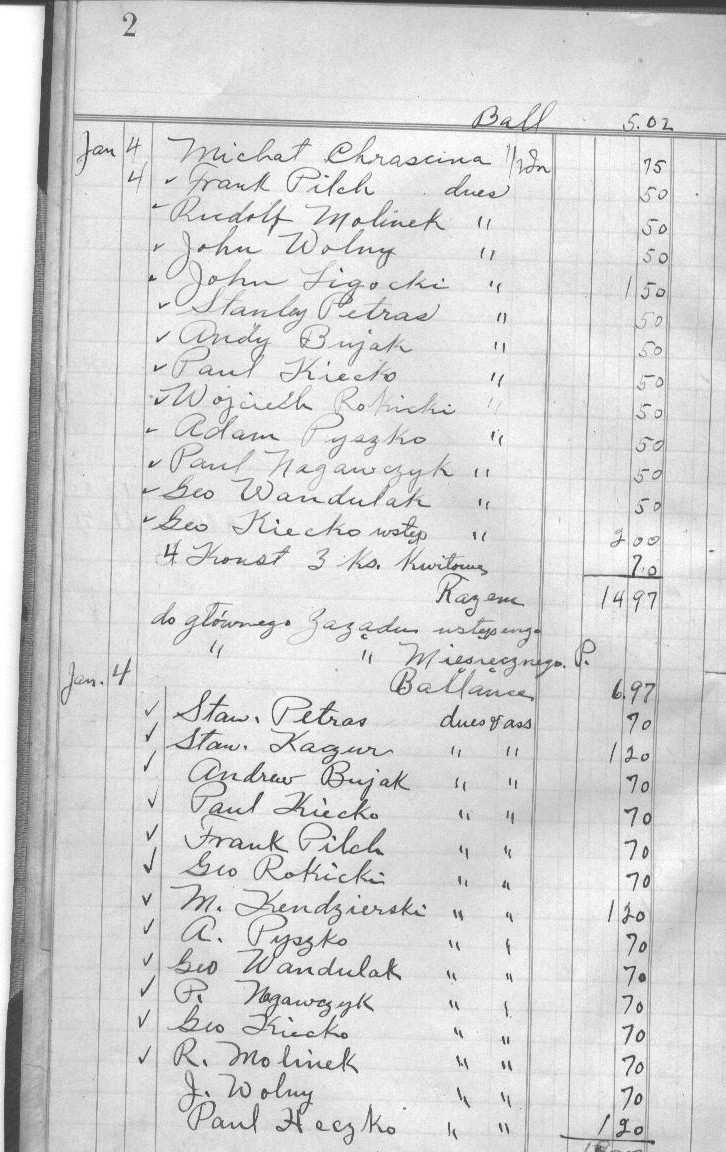 2
Ball 5.02
Jan 4 Michał Chrascina 75
4 ✓ Frank Pilch dues 50
✓ Rudolf Molinek " 50
✓ John Wolny " 50
✓ John Ligocki " 1 50
✓ Stanley Petras " 50
✓ Andy Bujak " 50
✓ Paul Kiecko " 50
✓ Wojciech Rokicki " 50
✓ Adam Pyszko " 50
✓ Paul Nogawczyk " 50
✓ Geo Wandulak " 50
✓ Geo Kiecko wstęp " 2 00
4 Konst 3 ks. Kwitowe 70
Razem 14 97
do głównego Zarządu wstępnego
" " Miesięcznego. P.
Jan. 4 Ballance 6.97
✓ Staw. Petras dues & ass 70
✓ Staw. Kagur " " 1 20
✓ Andrew Bujak " " 70
✓ Paul Kiecko " " 70
✓ Frank Pilch " " 70
✓ Geo Rokicki " " 70
✓ M. Kendzierski " " 1 20
✓ A. Pyszko " " 70
✓ Geo Wandulak " " 70
✓ P. Nogawczyk " " 70
✓ Geo Kiecko " " 70
✓ R. Molinek " " 70
J. Wolny " " 70
Paul Heczko " " 1 20